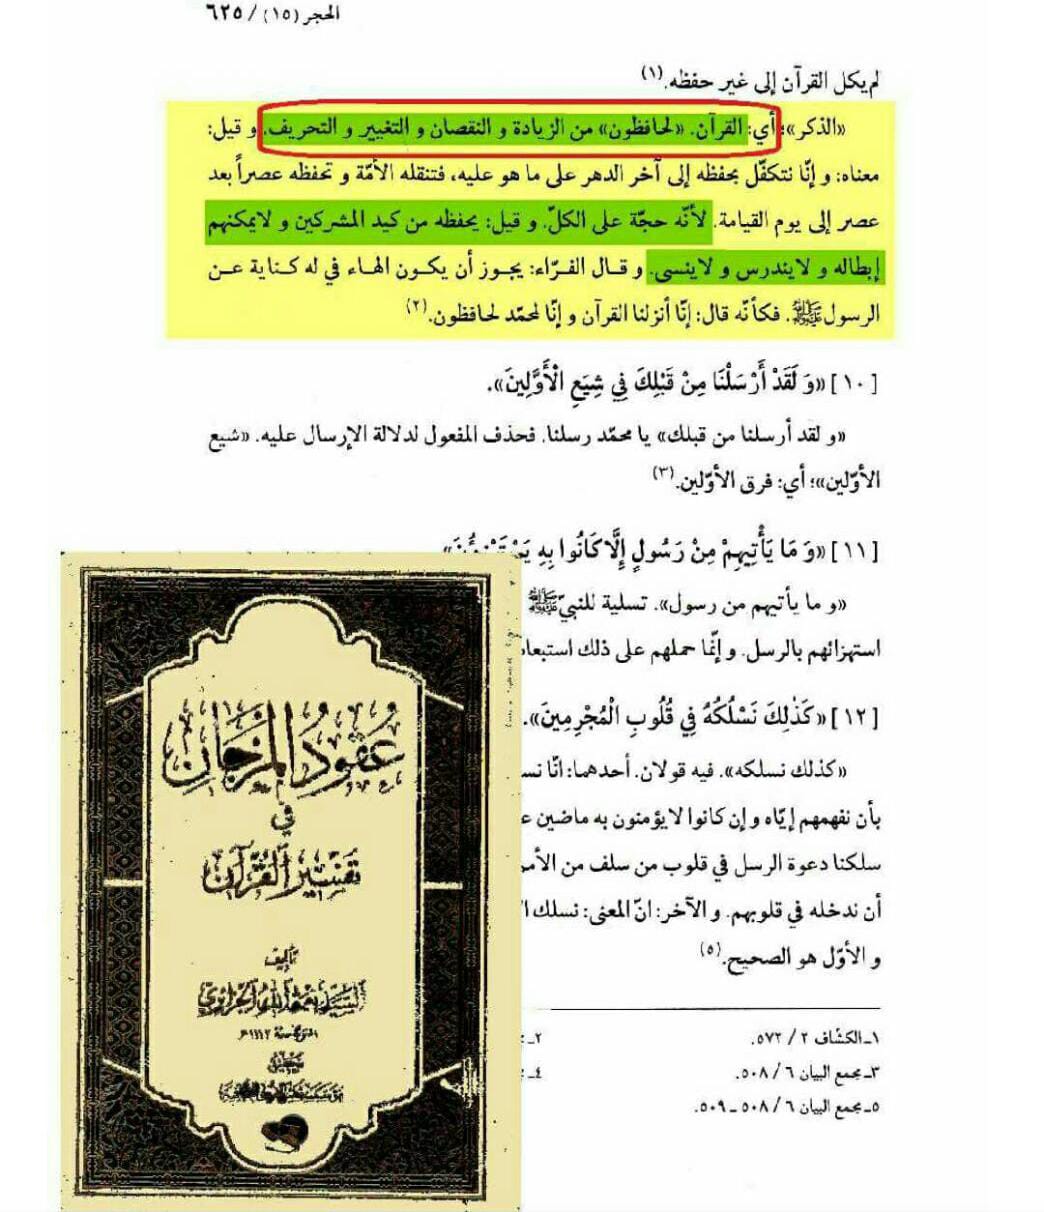 الحجر (١٥) / ٦٢٥
لم يكل القرآن إلى غير حفظه.(١)
«الذكر»؛ أي: القرآن. «لحافظون» من الزيادة و النقصان و التغيير و التحريف. و قيل:
معناه: و إنّا نتكفّل بحفظه إلى آخر الدهر على ما هو عليه، فتنقله الأمّة و تحفظه عصراً بعد
عصر إلى يوم القيامة. لأنّه حجّة على الكلّ. و قيل: يحفظه من كيد المشركين و لايمكنهم
إبطاله و لايندرس و لاينسى. و قال الفرّاء: يجوز أن يكون الهاء في له كناية عن
الرسول ﷺ. فكأنّه قال: إنّا أنزلنا القرآن و إنّا لمحمّد لحافظون.(٢)
[١٠] «وَ لَقَدْ أَرْسَلْنَا مِنْ قَبْلِكَ فِي شِيَعِ الْأَوَّلِينَ».
«و لقد أرسلنا من قبلك» يا محمّد رسلنا. فحذف المفعول لدلالة الإرسال عليه. «شيع
الأوّلين»؛ أي: فرق الأوّلين.(٣)
[١١] «وَ مَا يَأْتِيهِمْ مِنْ رَسُولٍ إِلَّا كَانُوا بِهِ
«و ما يأتيهم من رسول». تسلية للنبيّ ﷺ
استهزائهم بالرسل. و إنّما حملهم على ذلك
[١٢] «كَذٰلِكَ نَسْلُكُهُ فِي قُلُوبِ الْمُجْرِمِينَ».
«كذلك نسلكه». فيه قولان. أحدهما: انّا
بأن نفهمهم إيّاه و إن كانوا لا يؤمنون به ماضين
سلكنا دعوة الرسل في قلوب من سلف من
أن ندخله في قلوبهم. و الآخر: انّ المعنى: نسلك
و الأوّل هو الصحيح.(٥)
١ـ الكشّاف ٢ / ٥٧٢.
٢ـ
٣ـ مجمع البيان ٦ / ٥٠٨.
٤ـ
٥ـ مجمع البيان ٦ / ٥٠٨ ـ ٥٠٩.
عقود المرجان
في
تفسير القرآن
تأليف
السيد نعمة الله الجزائري
المتوفى سنة ١١١٢ هـ
تحقيق